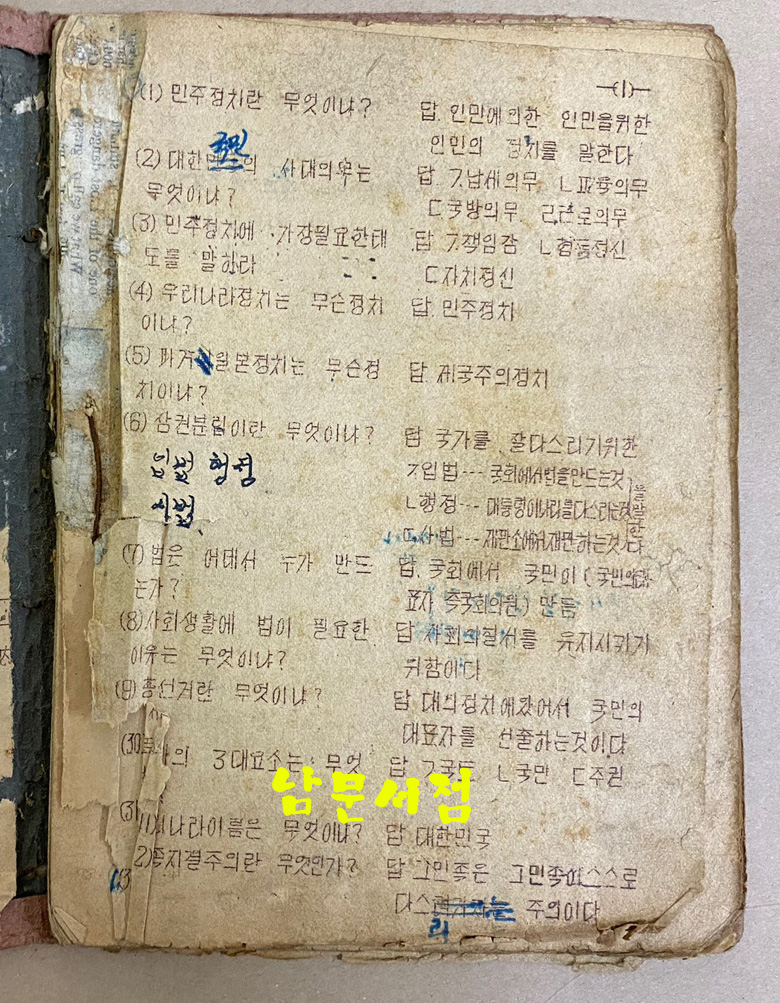 —(1)—
(1) 민주정치란 무엇이냐?
답. 인민에의한 인민을위한
인민의 정치를 말한다
국민
(2) 대한 의 사대의무는
무엇이냐?
답. ㄱ납세의무 ㄴ교육의무
ㄷ국방의무. ㄹ근로의무
(3) 민주정치에 가장필요한태
도를 말하라
답 ㄱ책임감 ㄴ협동정신
ㄷ자치정신
(4) 우리나라정치는 무슨정치
이냐?
답. 민주정치
(5) 과거 일본정치는 무슨정
치이냐?
답. 제국주의정치
(6) 삼권분립이란 무엇이냐?
입법 행정
사법
답 국가를 잘다스리기위한
ㄱ입법--- 국회에서법을만드는것
ㄴ행정--- 대통령이나라를다스리는것
ㄷ사법--- 재판소에서재판하는것
을말한다
(7) 법은 어데서 누가 만드
는가?
답. 국회에서 국민이 (국민의대
표자 즉국회의원) 만듬
(8) 사회생활에 법이 필요한
이유는 무엇이냐?
답 사회의질서를 유지시키기
위함이다
(9) 총선거란 무엇이냐?
답 대의정치에있어서 국민의
대표자를 선출하는것이다
(30 의 3대요소는 무엇
답 ㄱ국토 ㄴ국민 ㄷ주권
남문서점
(31
나라이름은 무엇이냐?
답 대한민국
2) 족자결주의란 무엇인가?
답 그민족은 그민족이스스로
다스 는 주의이다
리